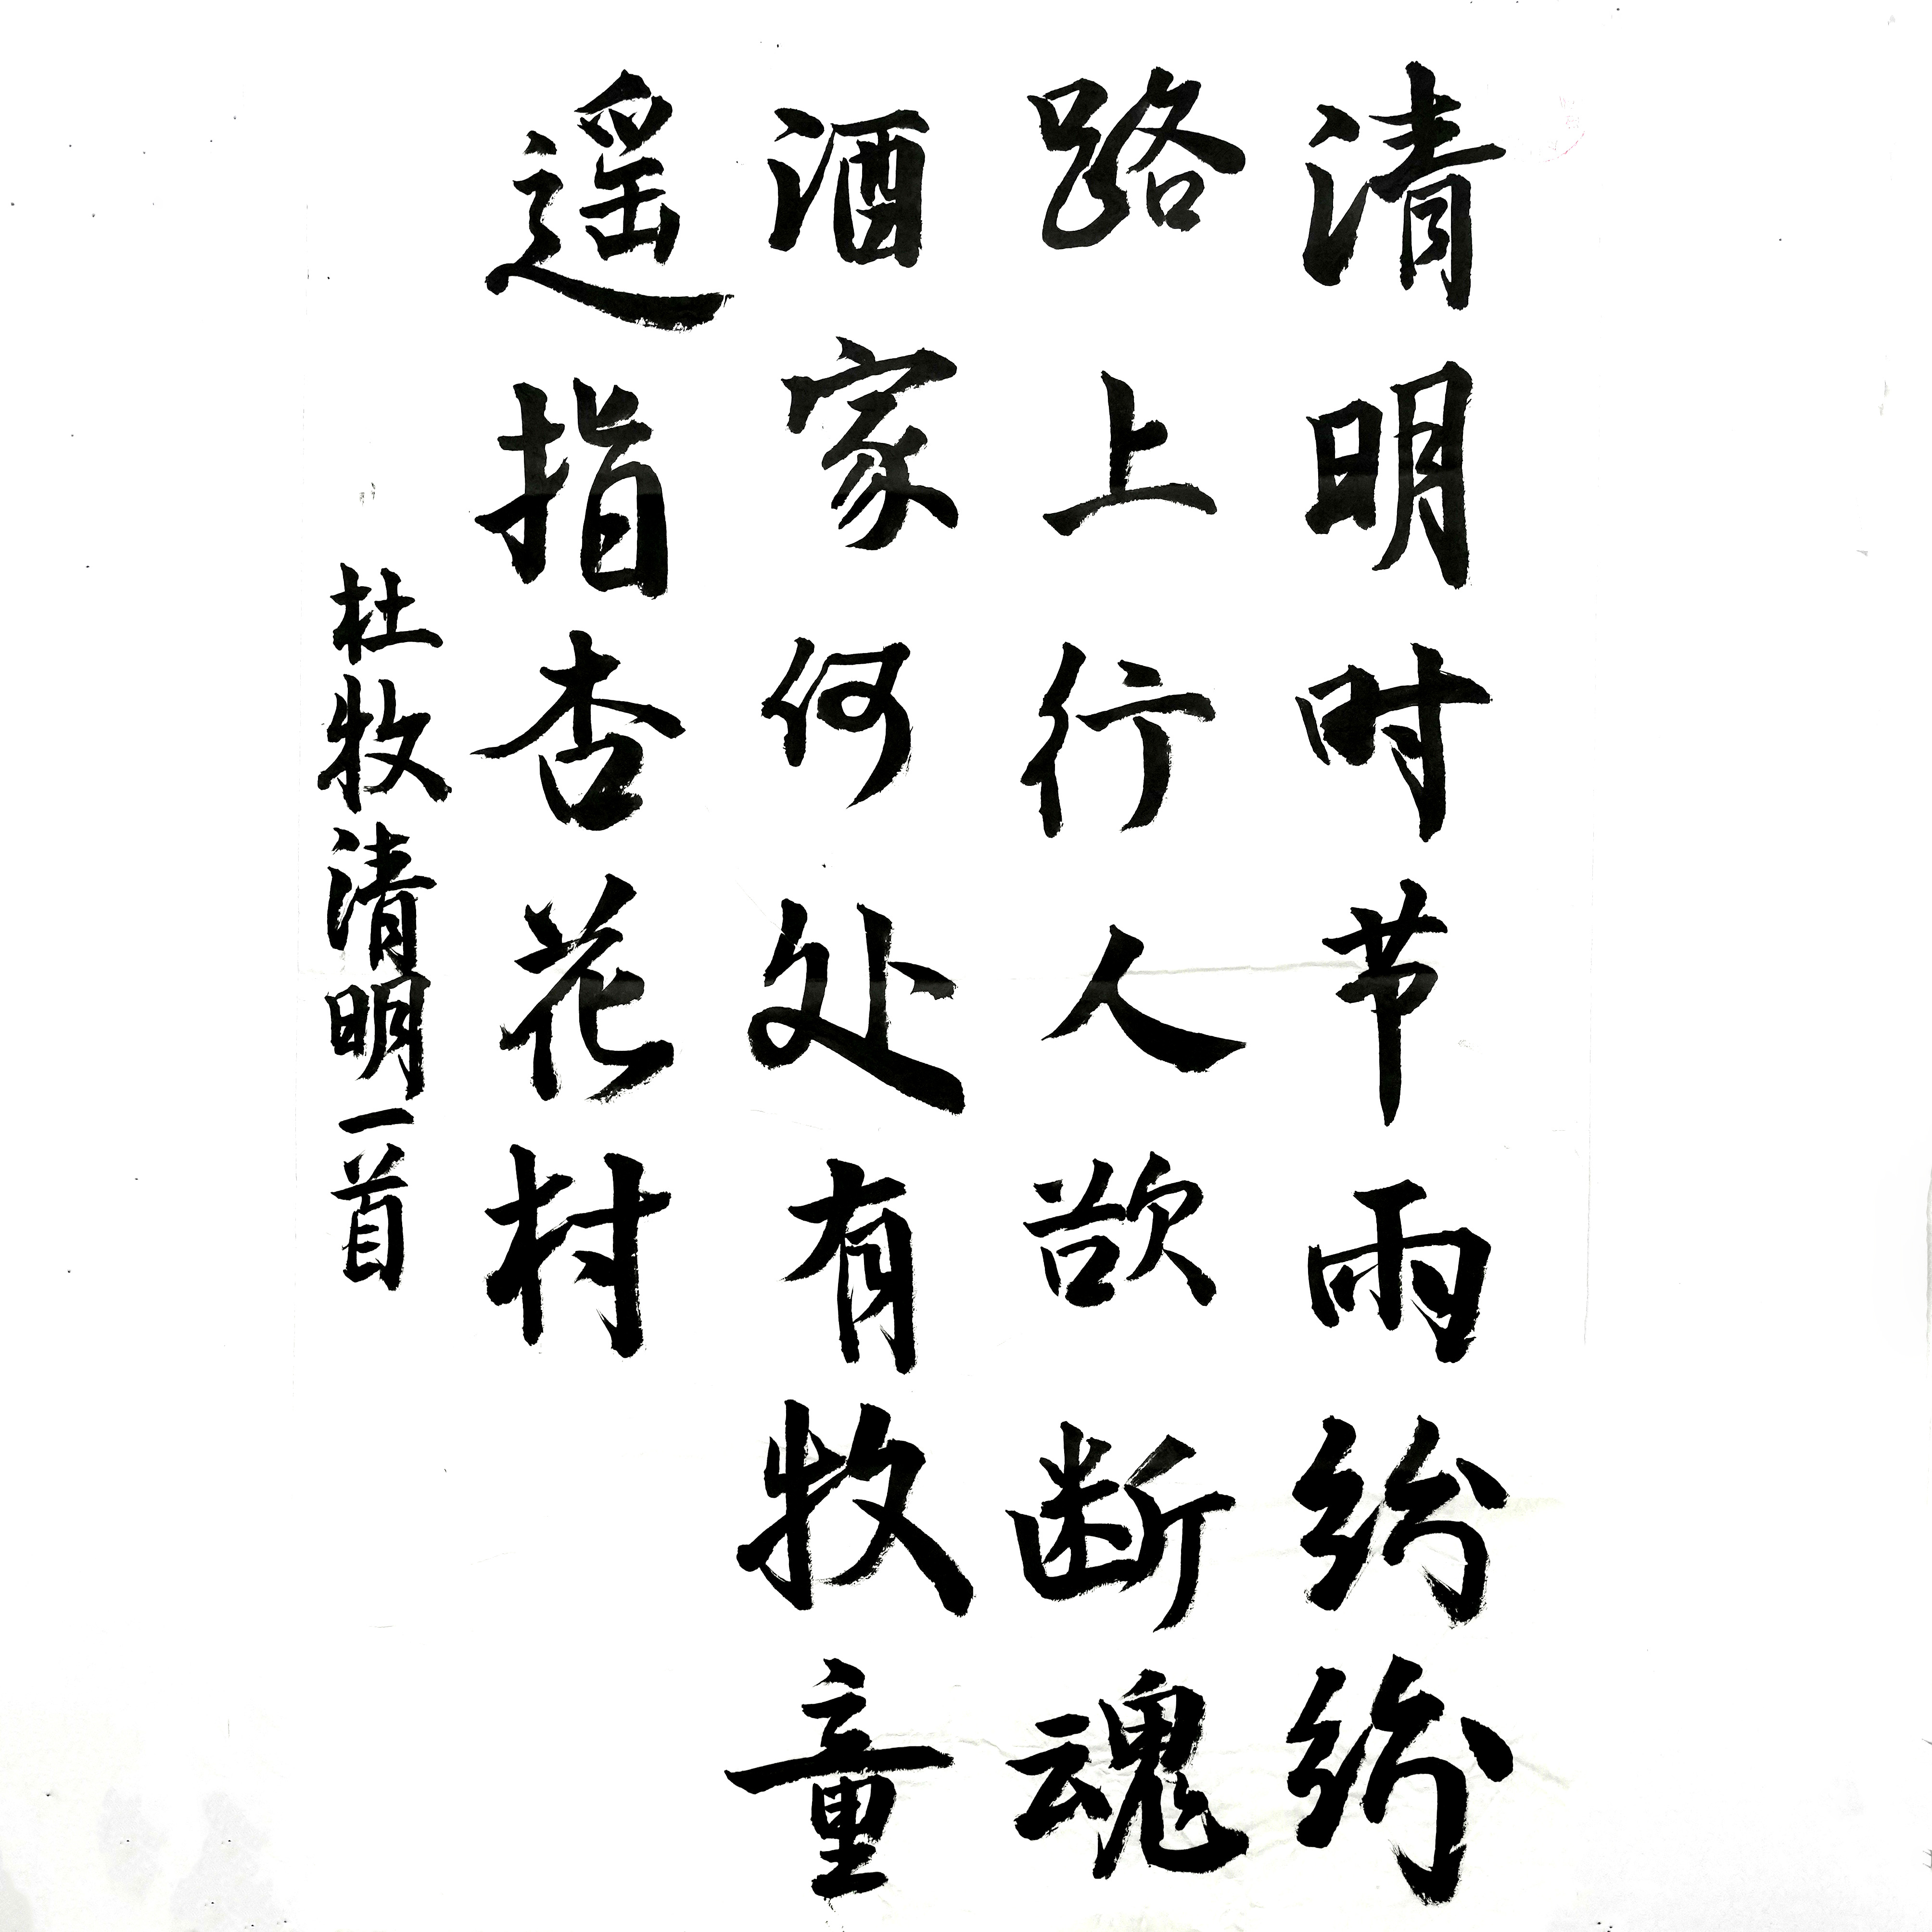 清明时节雨纷纷
路上行人欲断魂
酒家何处有牧童
遥指杏花村
杜牧清明一首